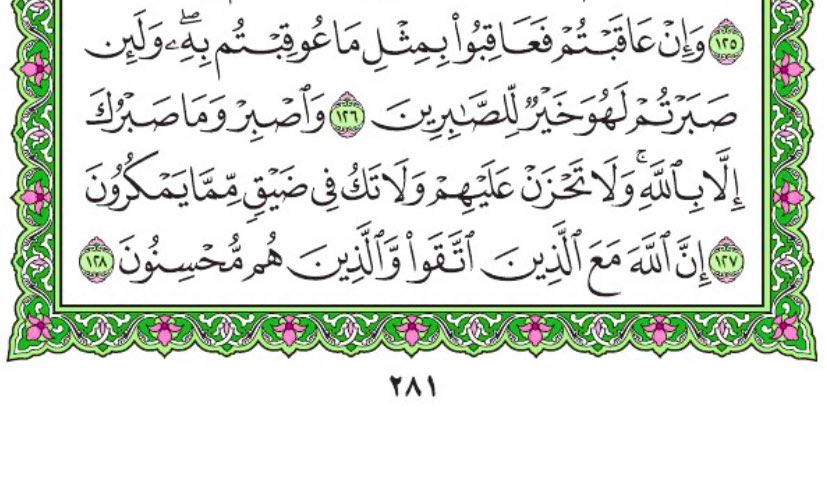 ١٢٥ وَإِنْ عَاقَبْتُمْ فَعَاقِبُوا۟ بِمِثْلِ مَا عُوقِبْتُم بِهِۦۖ وَلَئِن
صَبَرْتُمْ لَهُوَ خَيْرٌ لِّلصَّٰبِرِينَ ١٢٦ وَٱصْبِرْ وَمَا صَبْرُكَ
إِلَّا بِٱللَّهِۚ وَلَا تَحْزَنْ عَلَيْهِمْ وَلَا تَكُ فِى ضَيْقٍ مِّمَّا يَمْكُرُونَ
١٢٧ إِنَّ ٱللَّهَ مَعَ ٱلَّذِينَ ٱتَّقَوا۟ وَّٱلَّذِينَ هُم مُّحْسِنُونَ ١٢٨
٢٨١